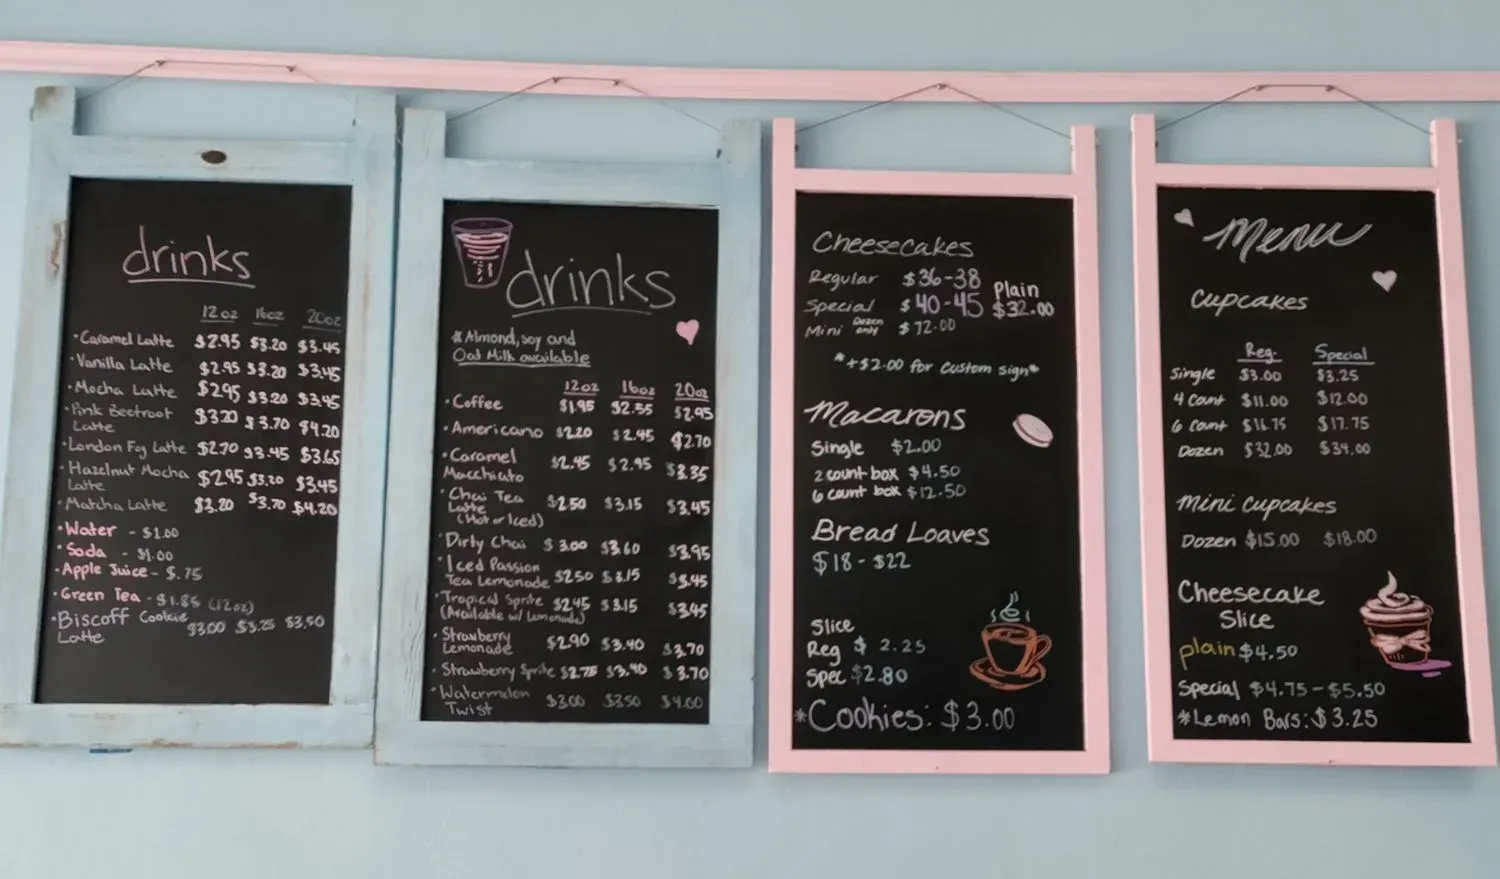 drinks
12oz 16oz 20oz
·Caramel Latte $2.95 $3.20 $3.45
·Vanilla Latte $2.95 $3.20 $3.45
·Mocha Latte $2.95 $3.20 $3.45
·Pink Beetroot $3.20 $3.70 $4.20
Latte
·London Fog Latte $2.70 $3.45 $3.65
·Hazelnut Mocha $2.95 $3.20 $3.45
Latte
·Matcha Latte $3.20 $3.70 $4.20
·Water - $1.00
·Soda - $1.00
·Apple Juice - $.75
·Green Tea - $1.85 (12oz)
·Biscoff Cookie $3.00 $3.25 $3.50
Latte
drinks
*Almond, soy and
Oat Milk available
12oz 16oz 20oz
·Coffee $1.95 $2.55 $2.95
·Americano $2.20 $2.45 $2.70
·Caramel $2.45 $2.95 $3.35
Macchiato
·Chai Tea
Latte $2.50 $3.15 $3.45
(Hot or Iced)
·Dirty Chai $3.00 $3.60 $3.95
·Iced Passion
Tea Lemonade $2.50 $3.15 $3.45
·Tropical Sprite $2.45 $3.15 $3.45
(Available w/ Lemonade)
·Strawberry $2.90 $3.40 $3.70
Lemonade
·Strawberry Sprite $2.75 $3.40 $3.70
·Watermelon $3.00 $3.50 $4.00
Twist
Cheesecakes
Regular $36-38 Plain
Special $40-45 $32.00
Mini Dozen only $72.00
*+$2.00 for custom sign*
Macarons
Single $2.00
2 count box $4.50
6 count box $12.50
Bread Loaves
$18 - $22
Slice
Reg $ 2.25
Spec $2.80
*Cookies: $3.00
Menu
Cupcakes
Reg. Special
Single $3.00 $3.25
4 Count $11.00 $12.00
6 Count $16.75 $17.75
Dozen $32.00 $34.00
Mini Cupcakes
Dozen $15.00 $18.00
Cheesecake
Slice
plain $4.50
Special $4.75 - $5.50
*Lemon Bars: $3.25